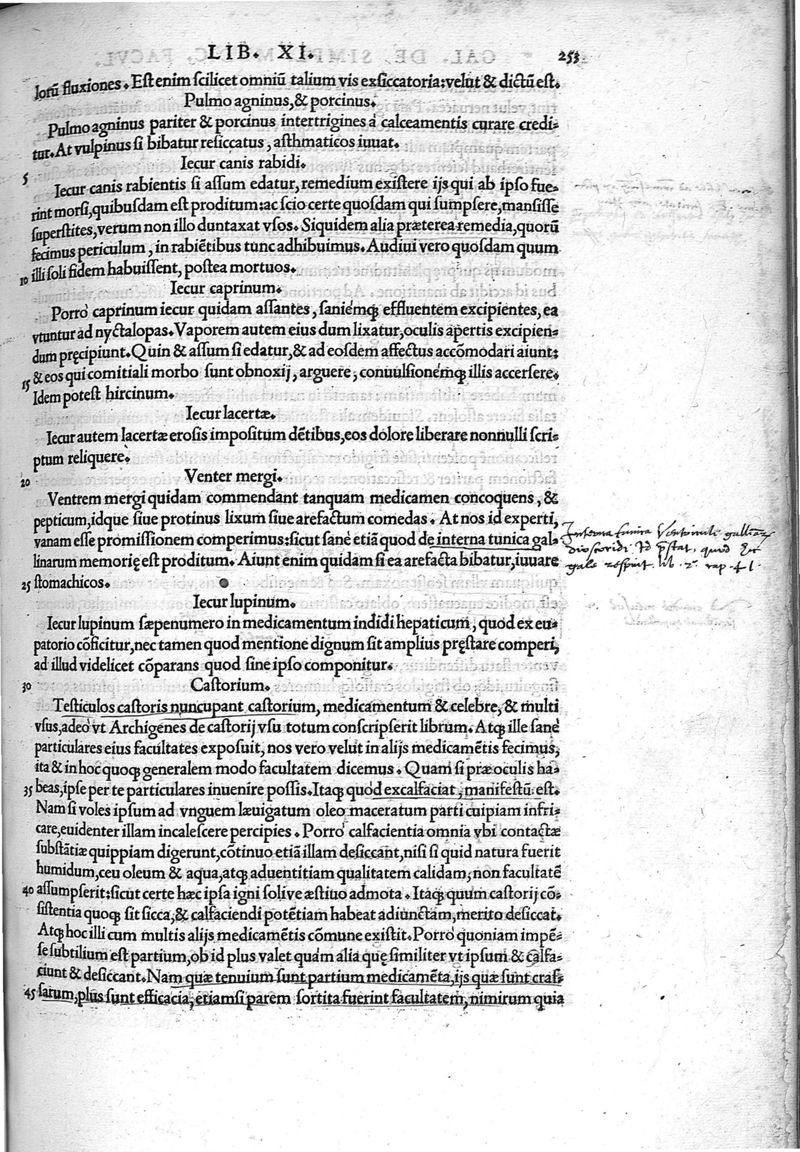 LIB. XI. 253
lorū fluxiones. Est enim scilicet omniū talium vis exsiccatoria: velut & dictū est.
Pulmo agninus, & porcinus.
Pulmo agninus pariter & porcinus intertrigines à calceamentis curare credi-
tur. At vulpinus si bibatur resiccatus, asthmaticos iuuat.
Iecur canis rabidi.
5
Iecur canis rabientis si assum edatur, remedium existere ijs qui ab ipso fue-
rint morsi, quibusdam est proditum: ac scio certe quosdam qui sumpsere, mansisse
superstites, verum non illo duntaxat vsos. Siquidem alia præterea remedia, quorū
fecimus periculum, in rabiētibus tunc adhibuimus. Audiui vero quosdam quum
10 illi soli fidem habuissent, postea mortuos.
Iecur caprinum.
Porrò caprinum iecur quidam assantes, saniemq; effluentem excipientes, ea
vtuntur ad nyctalopas. Vaporem autem eius dum lixatur, oculis apertis excipien-
dum pręcipiunt. Quin & assum si edatur, & ad eosdem affectus accōmodari aiunt:
15 & eos qui comitiali morbo sunt obnoxij, arguere, conuulsionemq; illis accersere.
Idem potest hircinum.
Iecur lacertæ.
Iecur autem lacertæ erosis impositum dētibus, eos dolore liberare nonnulli scri-
ptum reliquere.
20 Venter mergi.
Ventrem mergi quidam commendant tanquam medicamen concoquens, &
pepticum, idque siue protinus lixum siue arefactum comedas. At nos id experti,
vanam esse promissionem comperimus: sicut sanè etiā quod de interna tunica gal-
linarum memorię est proditum. Aiunt enim quidam si ea arefacta bibatur, iuuare
25 stomachicos.
Iecur lupinum.
Iecur lupinum sæpenumero in medicamentum indidi hepaticum, quod ex eu-
patorio cōficitur, nec tamen quod mentione dignum sit amplius pręstare comperi,
ad illud videlicet cōparans quod sine ipso componitur.
30 Castorium.
Testiculos castoris nuncupant castorium, medicamentum & celebre, & multi
vsus, adeò vt Archigenes de castorij vsu totum conscripserit librum. Atq; ille sanè
particulares eius facultates exposuit, nos vero velut in alijs medicamētis fecimus,
ita & in hoc quoq; generalem modo facultatem dicemus. Quam si præ oculis ha-
35 beas, ipse per te particulares inuenire possis. Itaq; quod excalfaciat, manifestū est.
Nam si voles ipsum ad vnguem læuigatum oleo maceratum parti cuipiam infri-
care, euidenter illam incalescere percipies. Porrò calfacientia omnia vbi contactæ
substātiæ quippiam digerunt, cōtinuo etiā illam desiccant, nisi si quid natura fuerit
humidum, ceu oleum & aqua, atq; aduentitiam qualitatem calidam, non facultatē
40 assumpserit: sicut certe hæc ipsa igni soliue æstiuo admota. Itaq; quum castorij cō-
sistentia quoq; sit sicca, & calfaciendi potētiam habeat adiunctam, merito desiccat.
Atq; hoc illi cum multis alijs medicamētis cōmune existit. Porrò quoniam impē-
se subtilium est partium, ob id plus valet quàm alia quę similiter vt ipsum & calfa-
ciunt & desiccant. Nam quæ tenuium sunt partium medicamēta, ijs quæ sunt cras-
45 sarum, plus sunt efficacia, etiamsi parem sortita fuerint facultatem, nimirum quia